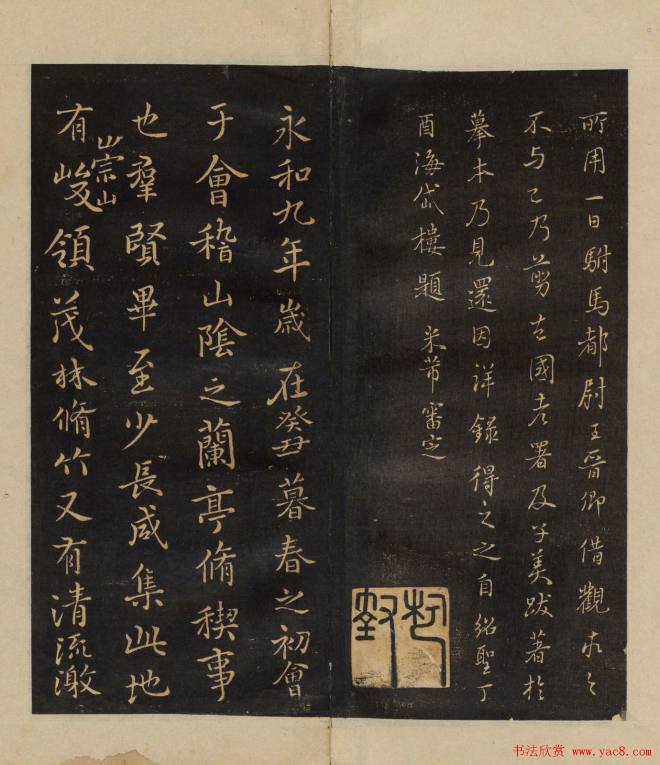 所用一日駙馬都尉王晉卿借觀求之
不与已乃剪去國老署及子美跋著於
摹本乃見還因詳錄得之之自紹聖丁
酉海岱樓題 米芾審定
永和九年歲在癸丑暮春之初會
于會稽山陰之蘭亭脩稧事
也羣賢畢至少長咸集此地
有崇山峻領茂林脩竹又有清流激
书法欣赏 www.yac8.com